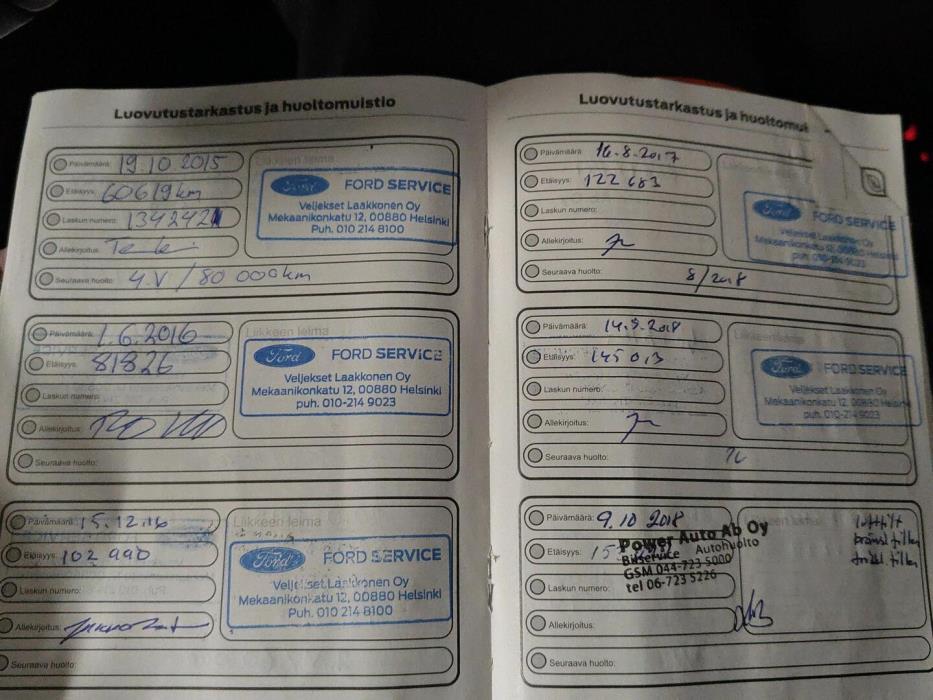 Luovutustarkastus ja huoltomuistio
Päivämäärä: 19.10 2015
Liikkeen leima
Etäisyys: 60619 km
Laskun numero: 134242
Allekirjoitus:
Seuraava huolto: 4.V / 80 000 km
Ford FORD SERVICE
Veljekset Laakkonen Oy
Mekaanikonkatu 12, 00880 Helsinki
Puh. 010 214 8100
Päivämäärä: 1.6.2016
Liikkeen leima
Etäisyys: 81826
Laskun numero:
Allekirjoitus:
Seuraava huolto:
Ford FORD SERVICE
Veljekset Laakkonen Oy
Mekaanikonkatu 12, 00880 Helsinki
puh. 010-214 9023
Päivämäärä: 15.12.16
Liikkeen leima
Etäisyys: 102 990
Laskun numero:
Allekirjoitus:
Seuraava huolto:
Ford FORD SERVICE
Veljekset Laakkonen Oy
Mekaanikonkatu 12, 00880 Helsinki
Puh. 010 214 8100
Luovutustarkastus ja huoltomui
Päivämäärä: 16.8.2017
Etäisyys: 122 683
Laskun numero:
Allekirjoitus:
Seuraava huolto: 8/2018
Ford FORD SERVICE
Veljekset Laakkonen Oy
Mekaanikonkatu 12, 00880 Helsinki
puh. 010-214 9023
Päivämäärä: 14.9.2018
Liikkeen leima
Etäisyys: 145 013
Laskun numero:
Allekirjoitus:
Seuraava huolto:
Ford FORD SERVICE
Veljekset Laakkonen Oy
Mekaanikonkatu 12, 00880 Helsinki
puh. 010-214 9023
Päivämäärä: 9.10 2018
Etäisyys:
Laskun numero:
Allekirjoitus:
Seuraava huolto:
Power Auto Ab Oy
Bilservice Autohuolto
GSM 044-723 5000
tel 06-723 5226